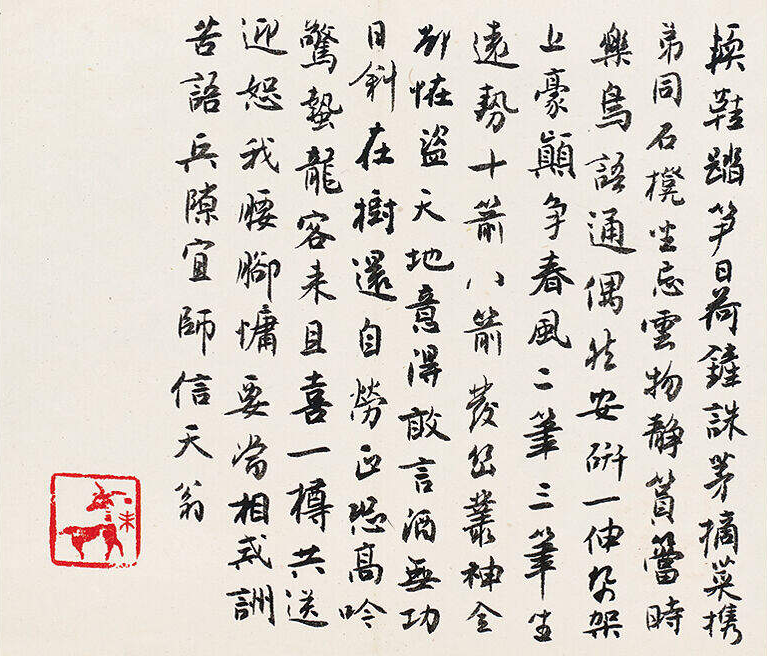 換鞋踏笋日荷誅茅摘攜
弟同石櫈坐忘雲物靜篔簹時
樂鳥語通偶然安硏一伸架
上豪顛爭春風二筆三筆生
遠勢十箭八箭發叢神全
別怪盜天地意得敢言酒無功
日斜在樹還自勞正恐高吟
驚蟄龍客来且喜一樽共送
迎恕我腰腳慵要當相戒詶
苦語兵隙宜師信天翁